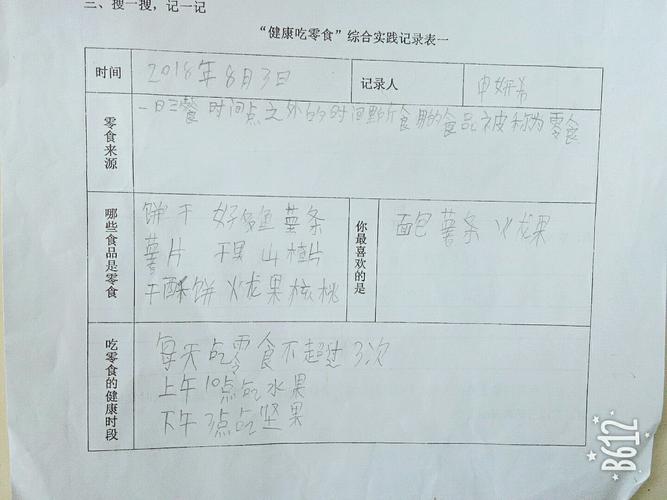 三、搜一搜，记一记
“健康吃零食”综合实践记录表一
时间 2018年8月3日 记录人 申妍希
零食来源 一日三餐时间点之外的时间里所食用的食品被称为零食
哪些食品是零食
饼干 好多鱼 薯条
薯片 干果 山楂片
干酥饼 火龙果 核桃
你最喜欢的是 面包 薯条 火龙果
吃零食的健康时段
每天吃零食不超过3次
上午10点吃水果
下午3点吃坚果
B612